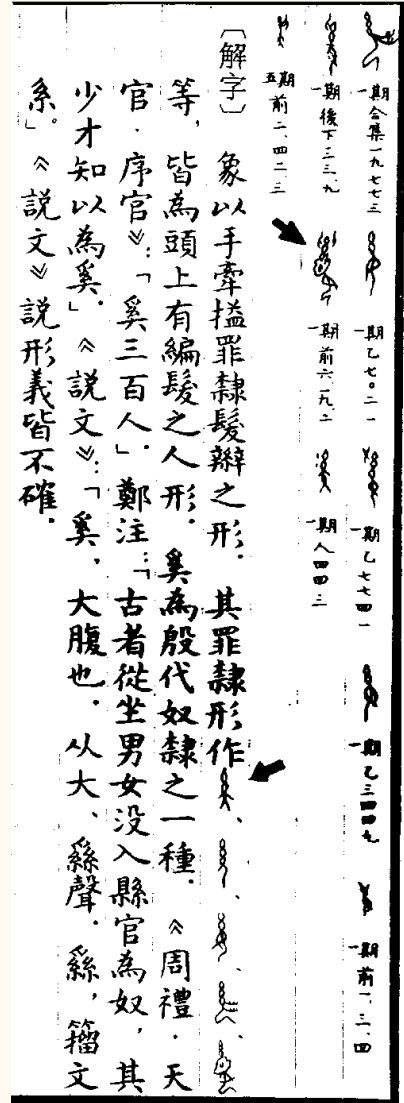 一期 合集一九七七三 一期 乙七〇二一 一期 乙七七四一 一期 乙三四四九 一期 前一.三.四
一期 後下三三.九 一期 前六.一九.二 一期 人四四三
五期 前二.四二.三
〔解字〕 象以手牽搤罪隸髮辮之形. 其罪隸形作 、 、 、 、
等，皆為頭上有編髮之人形. 奚為殷代奴隸之一種. 《周禮·天
官·序官》：「奚三百人」. 鄭注：「古者從坐男女没入縣官為奴，其
少才知以為奚.」《説文》：「奚，大腹也. 从大、𦃟聲. 𦃟，籀文
系。」《説文》説形義皆不確.